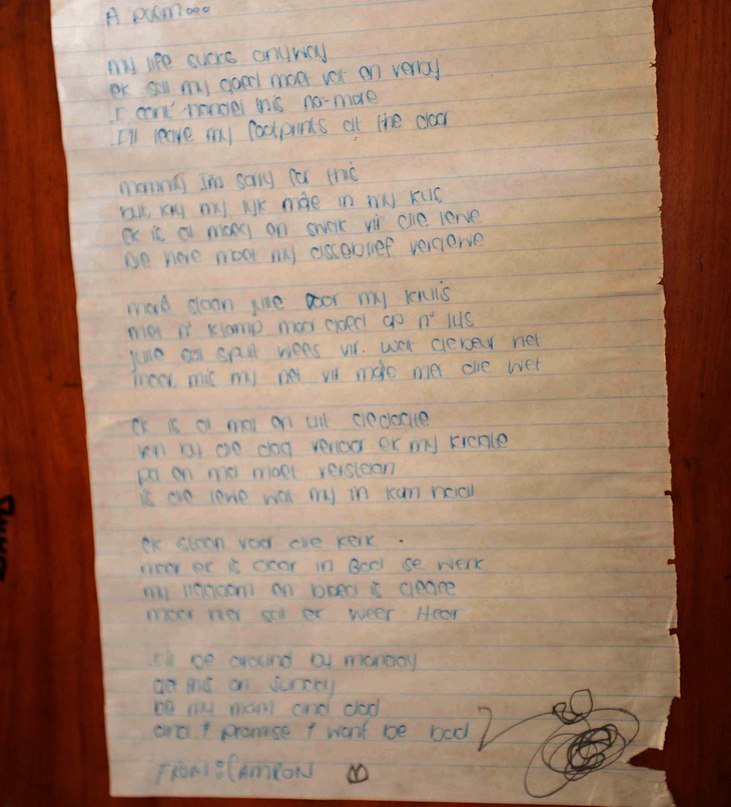 A poem...
my life sucks anyway
ek sal my goed moet vat en verby
I cant handel this no-more
I'll leave my footprints at the door
mommy Im sorry for this
but, kry my lyk môre in my kis
ek is al moeg en swak vir die lewe
die here moet my asseblief vergewe
môre staan julle voor my kruis
met n' klomp goed op n'
julle sal spuit wees vir. wat gebeur het
maar, mis my net vir môre met die wet
ek is al mal en uit
by die dag verloor ek my kragte
pa en ma moet verstaan
is die lewe wat my in kom haal
ek staan voor die kerk
maar ek is daar in God se werk
my liggaam en bloed is
maar hier sal ek weer Heer
I'll be around by monday
get this on Sunday
be my mom and dad
and I promise I wont be bad
FROM: CAMRON